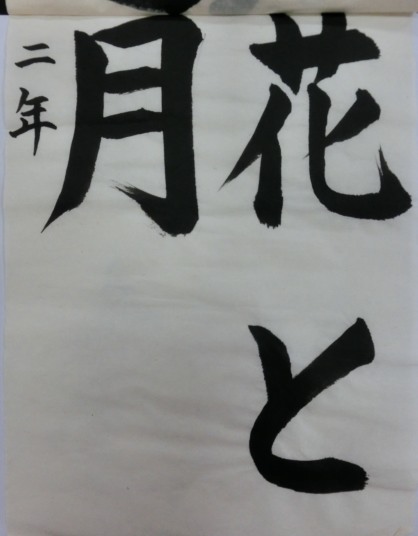 花と
月
二年